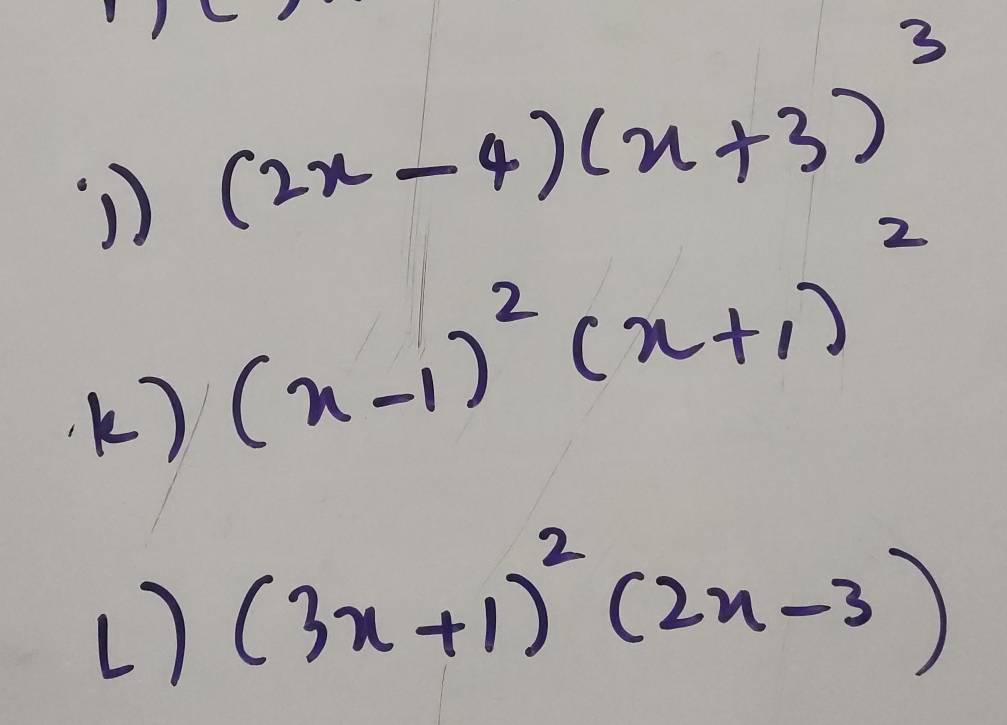 j) (2x - 4)(x + 3)³
k) (x - 1)² (x + 1)²
L) (3x + 1)² (2x - 3)